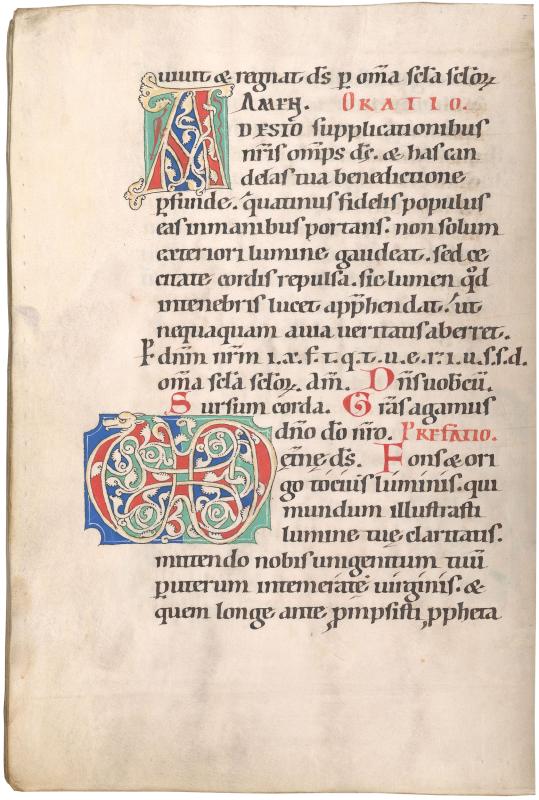 uiuit & regnat ds p om̄a scl̄a scl̄oꝝ
AMEN. ORATIO.
A DESTO supplicationibus
nr̄is om̄ps ds̄. & has can
delas tua benedictione
ꝑfunde. quatinus fidelis populus
eas inmanibus portans. non solum
exteriori lumine gaudeat. sed ce
citate cordis repulsa. sic lumen qd̄
intenebris lucet app̄hendat. ut
nequaquam auia ueritatis aberret.
P dn̄m nr̄m i.x.f.t.q.t.u.e.r.i.u.s.s.d.
om̄a scl̄a scl̄oꝝ. am̄. Dn̄s uobcū.
Sursum corda. Gr̄as agamus
dn̄o dō nr̄o. PREFATIO.
et̄ne ds̄. Fons & ori
go tocius luminis. qui
mundum illustrasti
lumine tue claritatis.
mittendo nobis unigenitum tuū
ꝑ uterum intemerate uirginis. &
quem longe ante, p̄mpsisti ꝓpheta